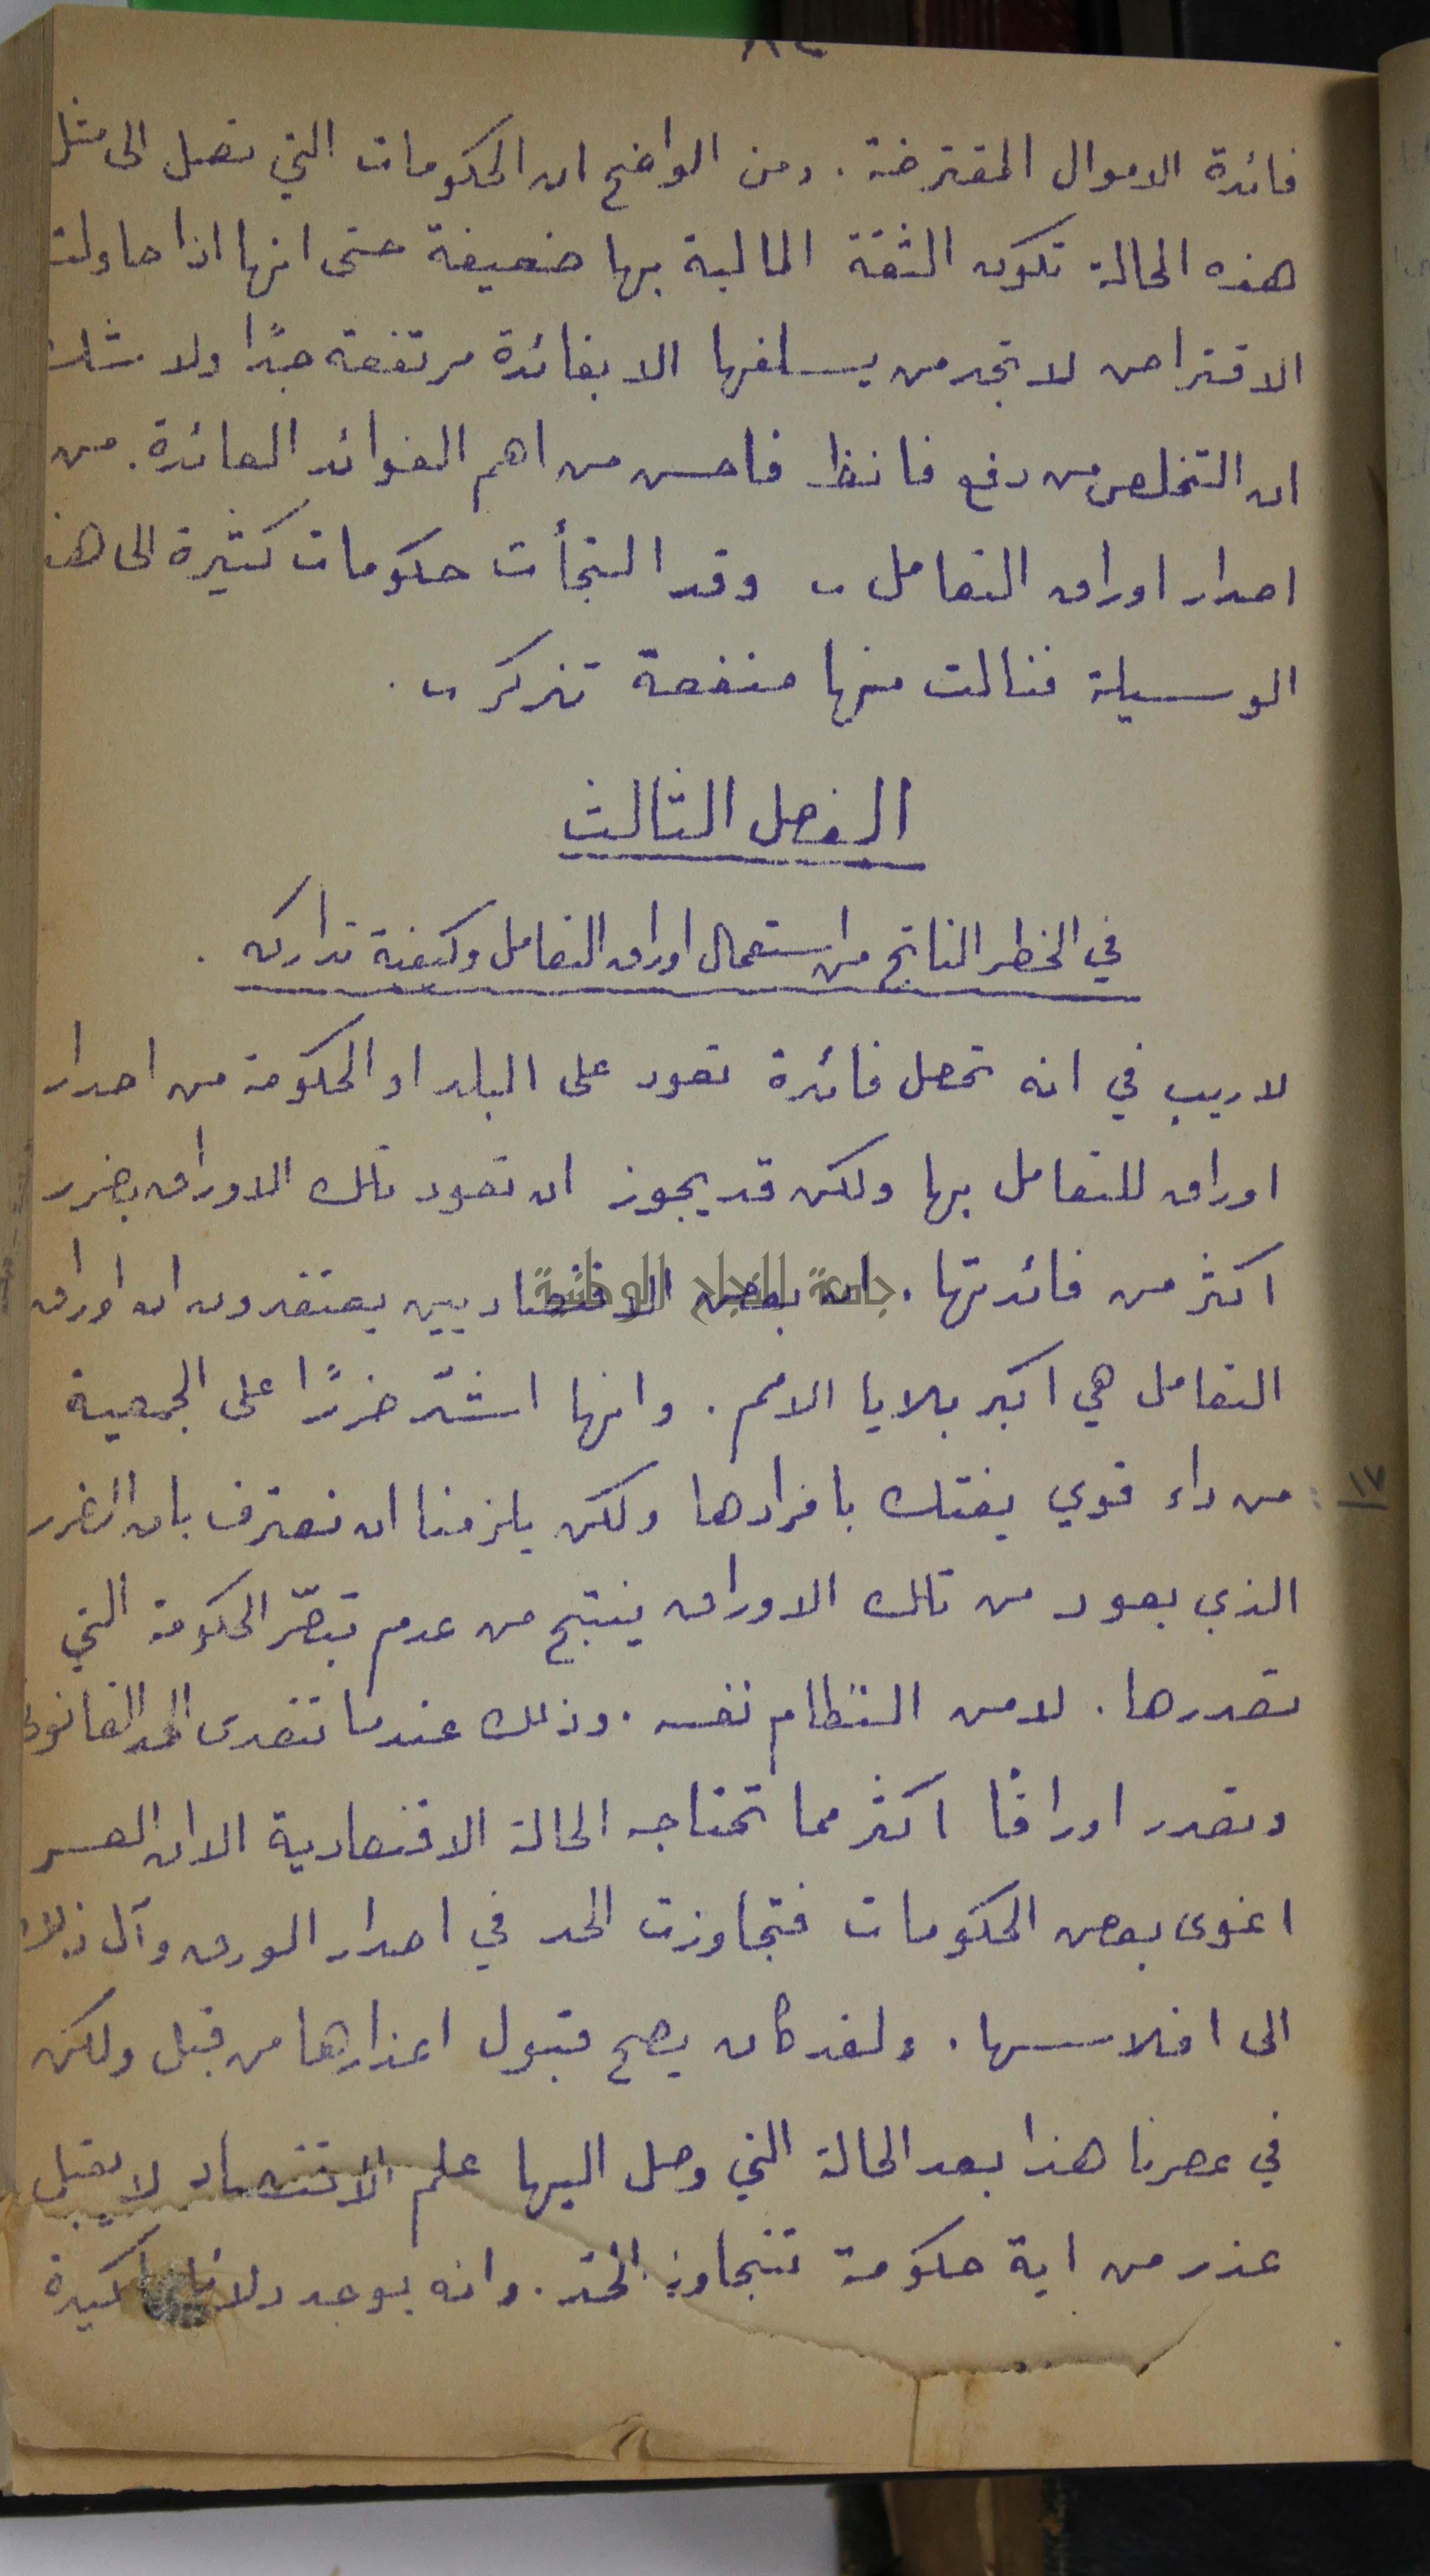 فائدة الاموال المقترضة . ومن الواضح ان الحكومات التي تصل الى مثل
هذه الحالة تكون الثقة المالية بها ضعيفة حتى انها اذا حاولت
الاقتراض لا تجد من يسلفها الا بفائدة مرتفعة جدًا ولا شك
ان التخلص من دفع فائظ فاحش من اهم الفوائد العائدة . من
اصدار اوراق التعامل .. وقد التجأت حكومات كثيرة الى هذه
الوسيلة فنالت منها منفعة تذكر ..
الفصل الثالث
في الخطر الناتج من استعمال اوراق التعامل وكيفية تداركه .
لا ريب في انه تحصل فائدة تعود على البلد او الحكومة من اصدار
اوراق للتعامل بها ولكن قد يجوز ان تعود تلك الاوراق بضرر
اكثر من فائدتها . ان بعض الاقتصاديين يعتقدون ان اوراق
جامعة النجاح الوطنية
التعامل هي اكبر بلايا الامم . وانها اشدّ ضررًا على الجمعية
من داء قوي يفتك بافرادها ولكن يلزمنا ان نعترف بان الضرر
١٧
الذي يعود من تلك الاوراق ينتج من عدم تبصّر الحكومة التي
تصدرها . لا من النظام نفسه . وذلك عندما تتعدى الحد القانوني
وتصدر اوراقًا اكثر مما تحتاجه الحالة الاقتصادية الا ان العسر
اغوى بعض الحكومات فتجاوزت الحد في اصدار الورق وآل ذلك
الى افلاسها . ولقد كان يصح قبول اعذارها من قبل ولكن
في عصرنا هذا بعد الحالة التي وصل اليها علم الاقتصاد لا يقبل
عذر من اية حكومة تتجاوز الحدّ . وانه يوجد دلائل اكيدة